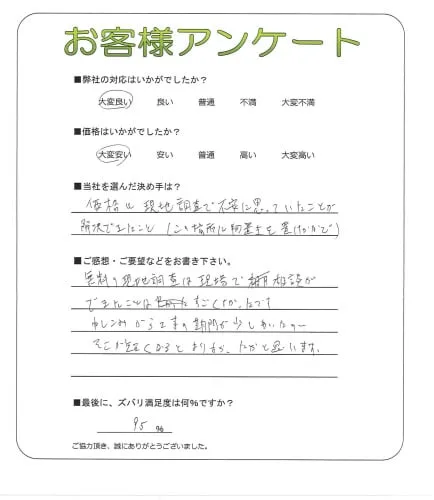 お客様アンケート
■弊社の対応はいかがでしたか？
大変良い 良い 普通 不満 大変不満
■価格はいかがでしたか？
大変安い 安い 普通 高い 大変高い
■当社を選んだ決め手は？
価格と現地調査で不安に思っていたことが
解決できたこと(この場所に物置を置けるかで)
■ご感想・ご要望などをお書き下さい。
無料の現地調査は現場で相談が
できたことはすごくよかったです
申しこみから工事の期間が少し
そこが短くなるとよりよかったかと思います。
■最後に、ズバリ満足度は何％ですか？
95 ％
ご協力頂き、誠にありがとうございました。